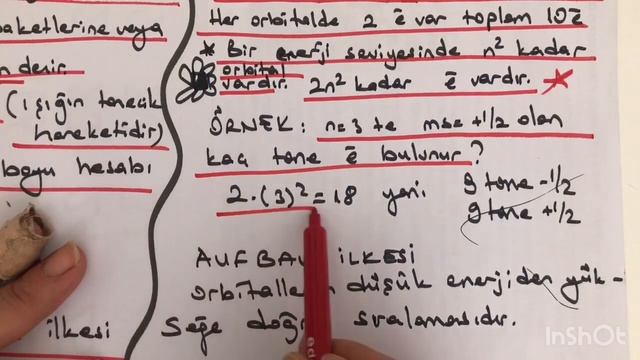 paketlerine veya
n denir.
(ışığın tanecik
hareketidir)
boyu hesabı
ilkesi
Her orbitalde 2 ē var toplam 10ē
* Bir enerji seviyesinde n² kadar
orbital
vardır. 2n² kadar ē vardır.
ÖRNEK: n=3 te ms=+1/2 olan
kaç tane ē bulunur?
2.(3)²=18 yani 9 tane -1/2
9 tane +1/2
AUFBAU İLKESİ
orbitallerin düşük enerjiden yük-
seğe doğru sıralamasıdır.
InShOt